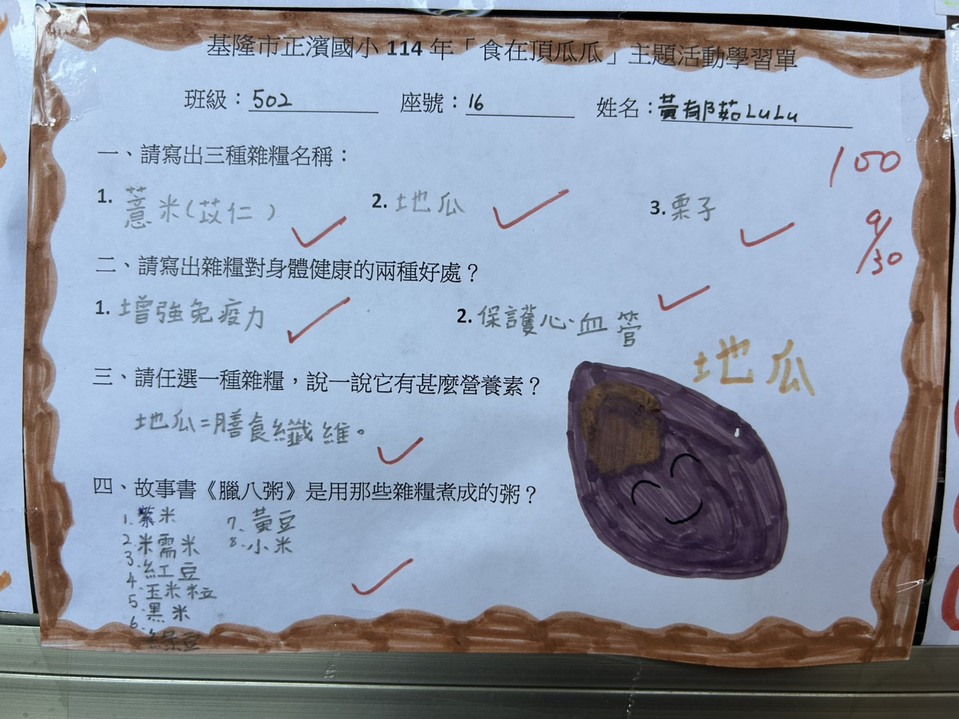 基隆市正濱國小 114 年「食在頂瓜瓜」主題活動學習單
班級：502 座號：16 姓名：黃郁茹LuLu
100
9/30
一、請寫出三種雜糧名稱：
1. 薏米(苡仁) 2. 地瓜 3. 栗子
二、請寫出雜糧對身體健康的兩種好處？
1. 增強免疫力 2. 保護心血管
三、請任選一種雜糧，說一說它有甚麼營養素？
地瓜=膳食纖維。
地瓜
四、故事書《臘八粥》是用那些雜糧煮成的粥？
1. 紫米 7. 黃豆
2. 糯米 8. 小米
3. 紅豆
4. 玉米粒
5. 黑米
6. 綠豆